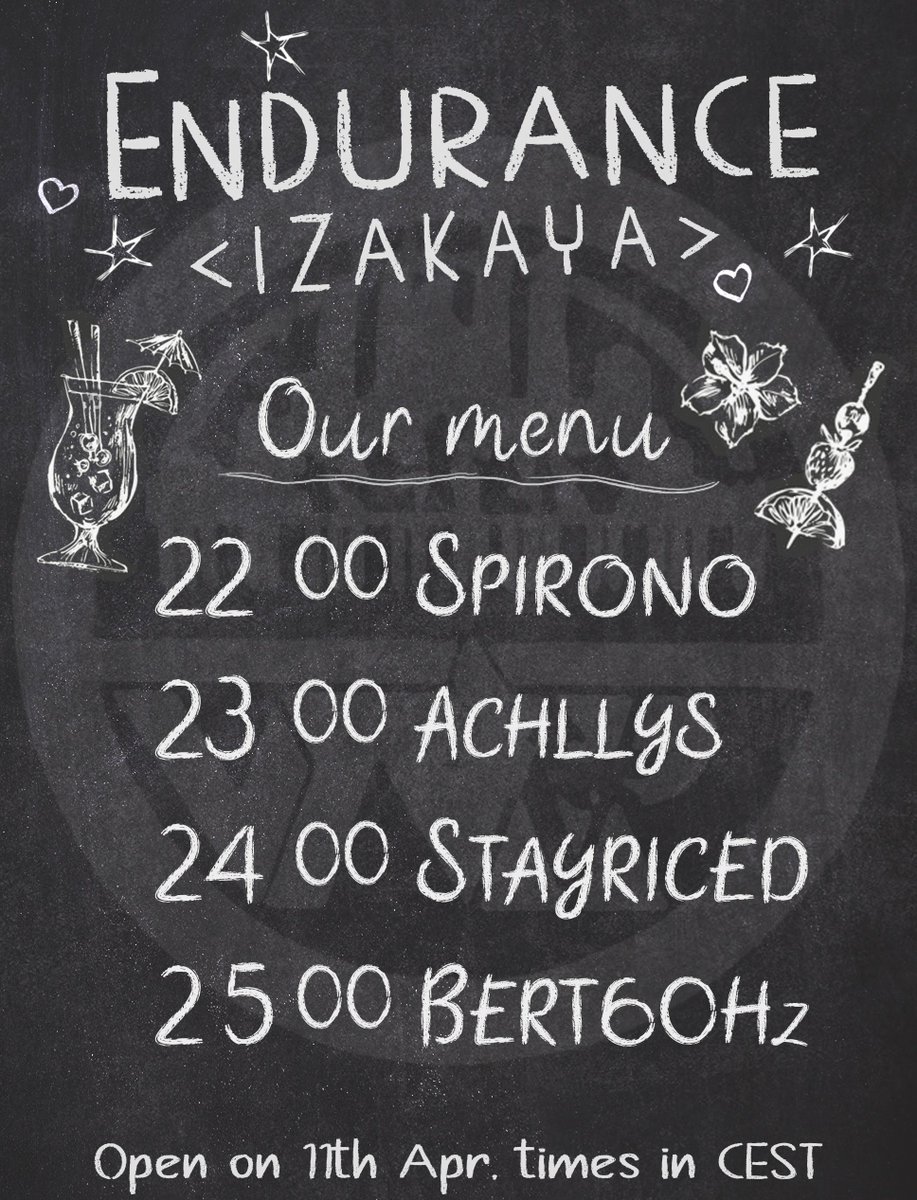 ENDURANCE
<IZAKAYA>
Our menu
22 00 SPIRONO
23 00 ACHLLYS
24 00 STAYRICED
25 00 BERT60Hz
Open on 11th Apr. times in CEST